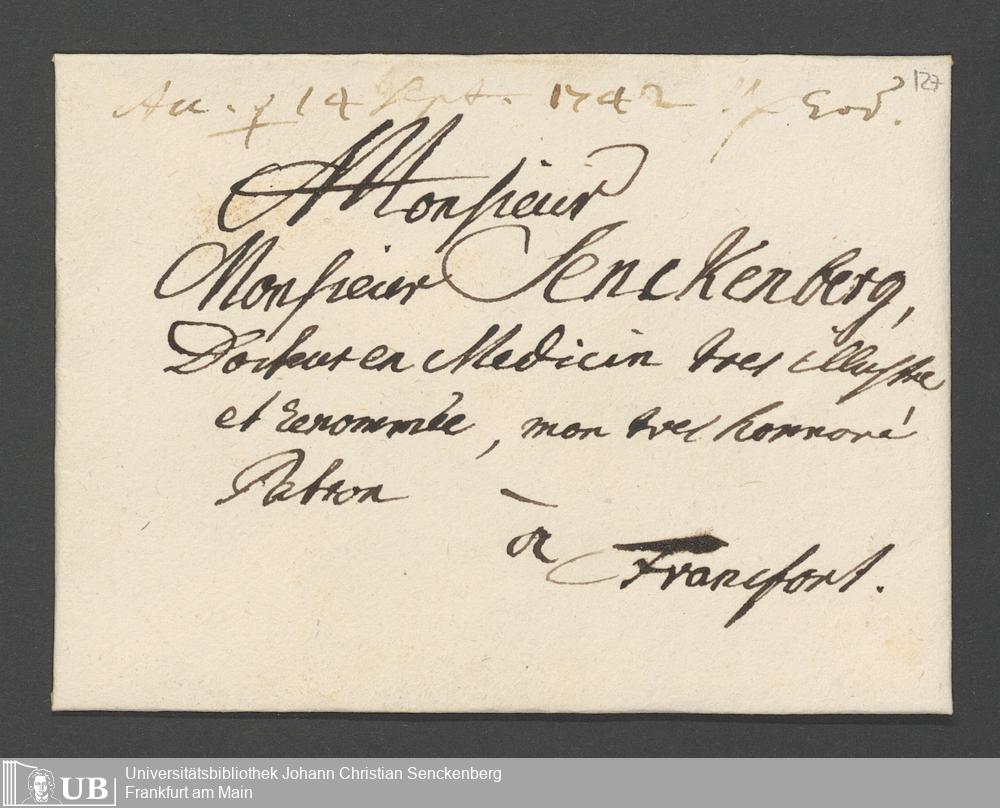 127
Acc. ♀ 14 Sept. 1742 Eod.
Monsieur
Monsieur Senckenberg,
Docteur en Medicin tres illustre
et renommée, mon tres honnoré
Patron
à
Francfort.
UB Universitätsbibliothek Johann Christian Senckenberg
Frankfurt am Main